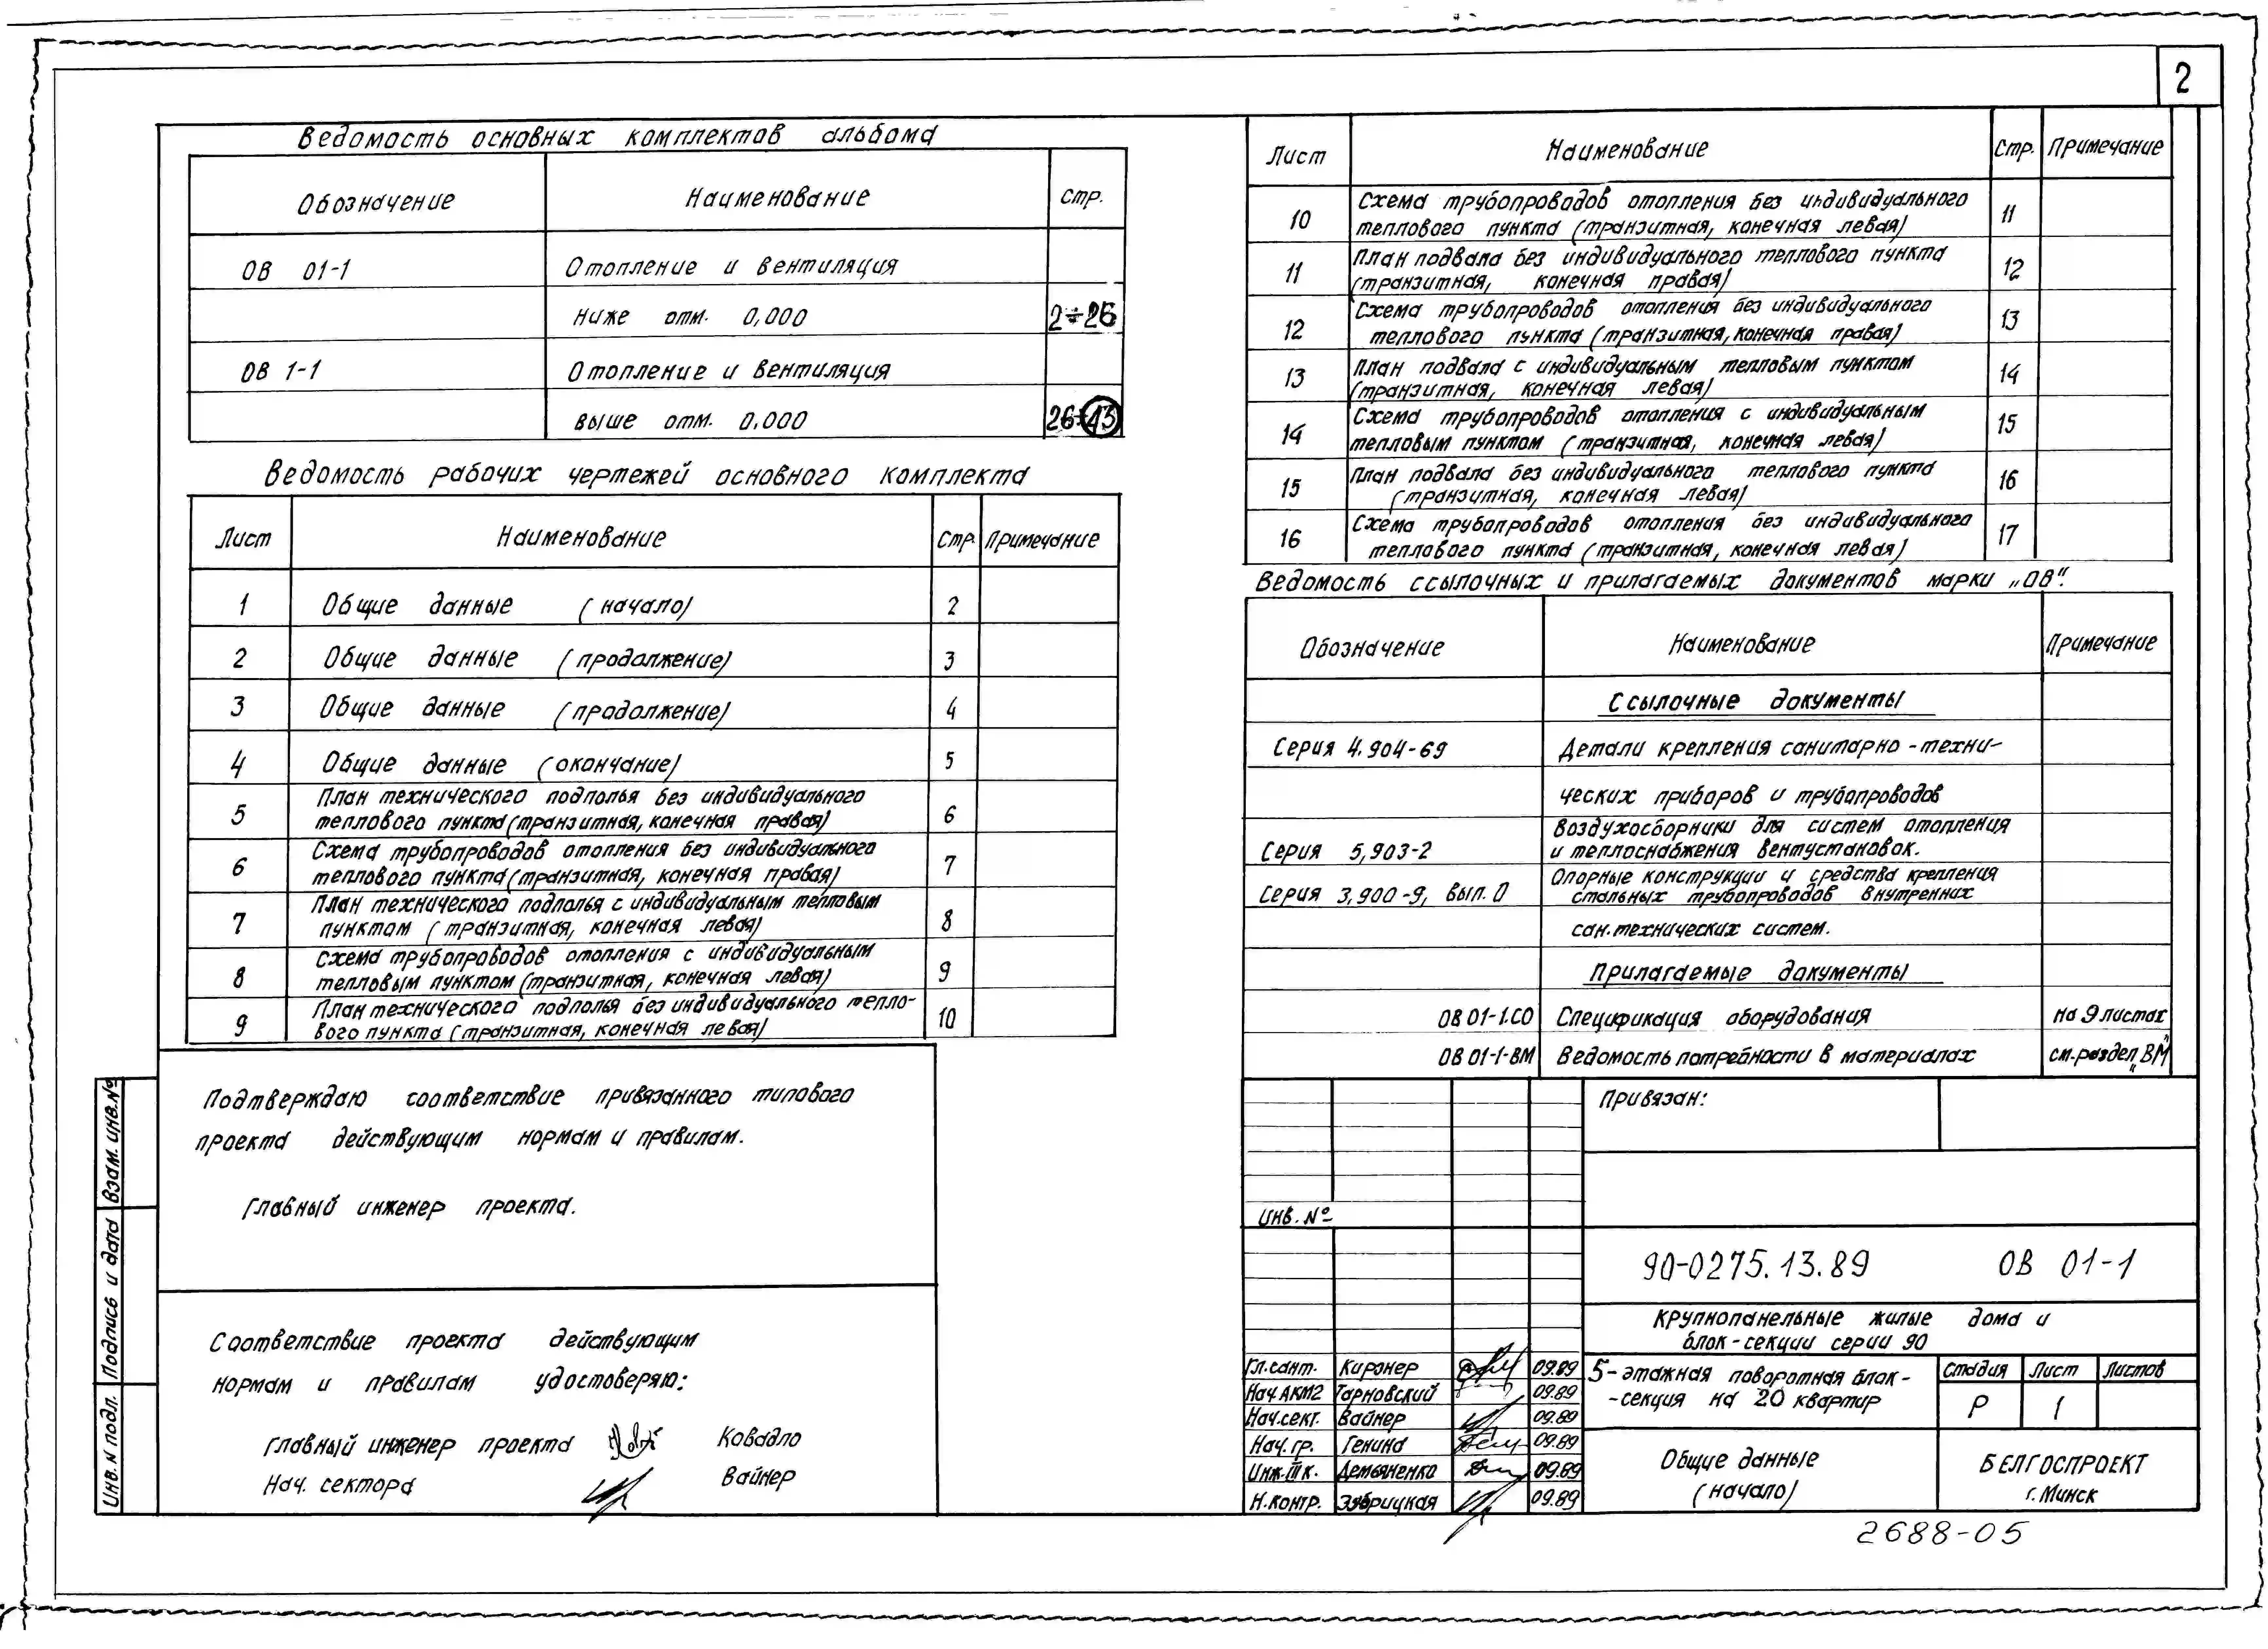 2
Ведомость основных комплектов альбома
Обозначение Наименование стр.
ОВ 01-1 Отопление и вентиляция
ниже отм. 0,000 2÷26
ОВ 1-1 Отопление и вентиляция
выше отм. 0.000
Ведомость рабочих чертежей основного комплекта
Лист Наименование Стр. Примечание
1 Общие данные (начало) 2
2 Общие данные (продолжение) 3
3 Общие данные (продолжение) 4
4 Общие данные (окончание) 5
5 План технического подполья без индивидуального
теплового пункта (транзитная, конечная правая) 6
6 Схема трубопроводов отопления без индивидуального
теплового пункта (транзитная, конечная правая) 7
7 План технического подполья с индивидуальным тепловым
пунктом (транзитная, конечная левая) 8
8 Схема трубопроводов отопления с индивидуальным
тепловым пунктом (транзитная, конечная левая) 9
9 План технического подполья без индивидуального тепло-
вого пункта (транзитная, конечная левая) 10
Подтверждаю соответствие привязанного типового
проекта действующим нормам и правилам.
Главный инженер проекта.
Соответствие проекта действующим
нормам и правилам удостоверяю:
главный инженер проекта Ковадло
Нач. сектора Вайнер
Взам. инв. №
Подпись и дата
Инв. N подл.
Лист Наименование Стр. Примечание
10 Схема трубопроводов отопления без индивидуального
теплового пункта (транзитная, конечная левая) 11
11 План подвала без индивидуального теплового пункта
(транзитная, конечная правая) 12
12 Схема трубопроводов отопления без индивидуального
теплового пункта (транзитная, конечная правая) 13
13 План подвала с индивидуальным тепловым пунктом
(транзитная, конечная левая) 14
14 Схема трубопроводов отопления с индивидуальным
тепловым пунктом (транзитная, конечная левая) 15
15 План подвала без индивидуального теплового пункта
(транзитная, конечная левая) 16
16 Схема трубопроводов отопления без индивидуального
теплового пункта (транзитная, конечная левая) 17
Ведомость ссылочных и прилагаемых документов марки „ОВ".
Обозначение Наименование Примечание
Ссылочные документы
Серия 4.904-69 Детали крепления санитарно-техни-
ческих приборов и трубопроводов
Серия 5,903-2 Воздухосборники для систем отопления
и теплоснабжения вентустановок.
Серия 3,900-9, вып. 0 Опорные конструкции и средства крепления
стальных трубопроводов внутренних
сан.технических систем.
Прилагаемые документы
ОВ 01-1.СО Спецификация оборудования на 9 листах
ОВ 01-1-ВМ Ведомость потребности в материалах см. раздел „ВМ"
Привязан:
Инв. №
90-0275.13.89 ОВ 01-1
Крупнопанельные жилые дома и
блок-секции серии 90
Гл.сант. Киронер 09.89
Нач.АКМ2 Тарновский 09.89
Нач.сект. Вайнер 09.89
Нач. гр. Генина 09.89
Инж. III к. Демьяненко 09.89
Н.контр. Зубрицкая 09.89
5-этажная поворотная блок-
-секция на 20 квартир
Стадия Лист Листов
Р 1
Общие данные
(начало)
БЕЛГОСПРОЕКТ
г. Минск
2688-05